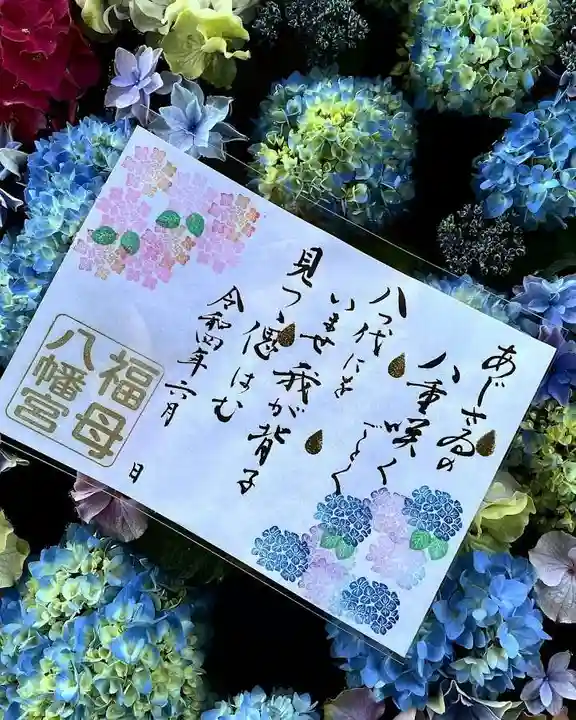 あじさゐの
八重咲く
ごとく
八つ代にを
いませ我が背子
見つゝ偲はむ
令和四年 六月
日
福母
八幡宮